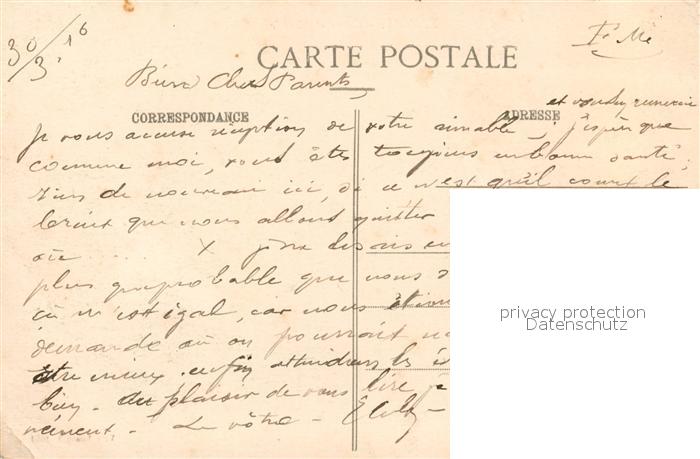 30/3.16
F. M.
CARTE POSTALE
Bien Chers Parents
CORRESPONDANCE
ADRESSE
et voudrez
Je vous accuse réception de votre aimable, j'espère que
comme moi, vous êtes toujours en bonne santé,
rien de nouveau ici, si ce n'est qu'il court le
bruit que nous allons quitter
où ... X
plus que probable que nous
ça m'est égal, car nous étions
demande où on pourrait
être mieux. enfin attendons les
bien. Au plaisir de vous lire, je
Le vôtre -
privacy protection
Datenschutz